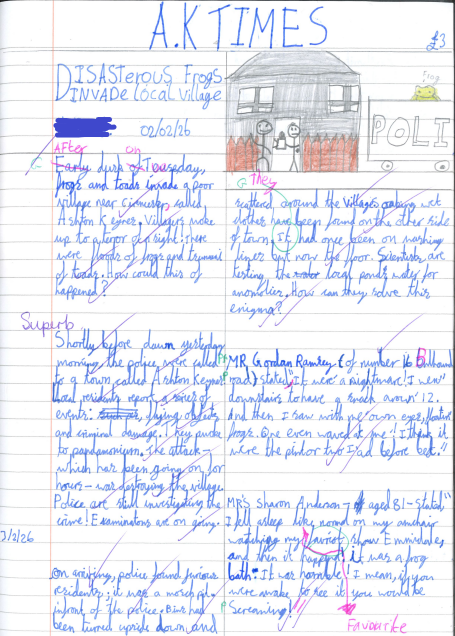 A.K TIMES
£3
DISASTEROUS FROGS
INVADE local village
02/02/26
Frog
POLI
AFter on
G Early dusk of Tuesday,
frogs and toads invade a poor
village near called
Ashton Keynes. Villagers woke
up to terror and fright: there
were floods of frogs and
of toads. How could this of
happened?
Superb
Shortly before dawn yesterday
morning the police were called
to a town called Ashton Keynes.
Local residents report a series of
events: flying objects
and criminal damage. They quoke
to The attack -
which has been going on, for
hours - was destroying the village.
Police are still investigating the
crime! Examinators are on going.
3/2/26
On arriving, police found furious
residents; it was a march
infront of the police. Bins had
been turned upside down and
G They
scattered around the village wet
clothes have been found on the other side
of town. It had once been on washing
lines but now the floor. Scientists are
testing the local ponds water for
anomolies. How can they solve this
enigma?
MR Gordan Ramsey (of number 16 B
road) stated, "It were a nightmare! I went
downstairs to have a snack around 12.
and then I saw with me own eyes, floatin
frogs. One even waved at me! I think it
were the pint or two I ad before bed."
MRS Sharon Anderson - aged 81 - stated "
I fell asleep like normal on my armchair
watching my show Emmerdale,
and then it happened! it was a frog
bath. It was horrible. I mean, if you
were awake to see it you would be
P Screaming!
Favourite